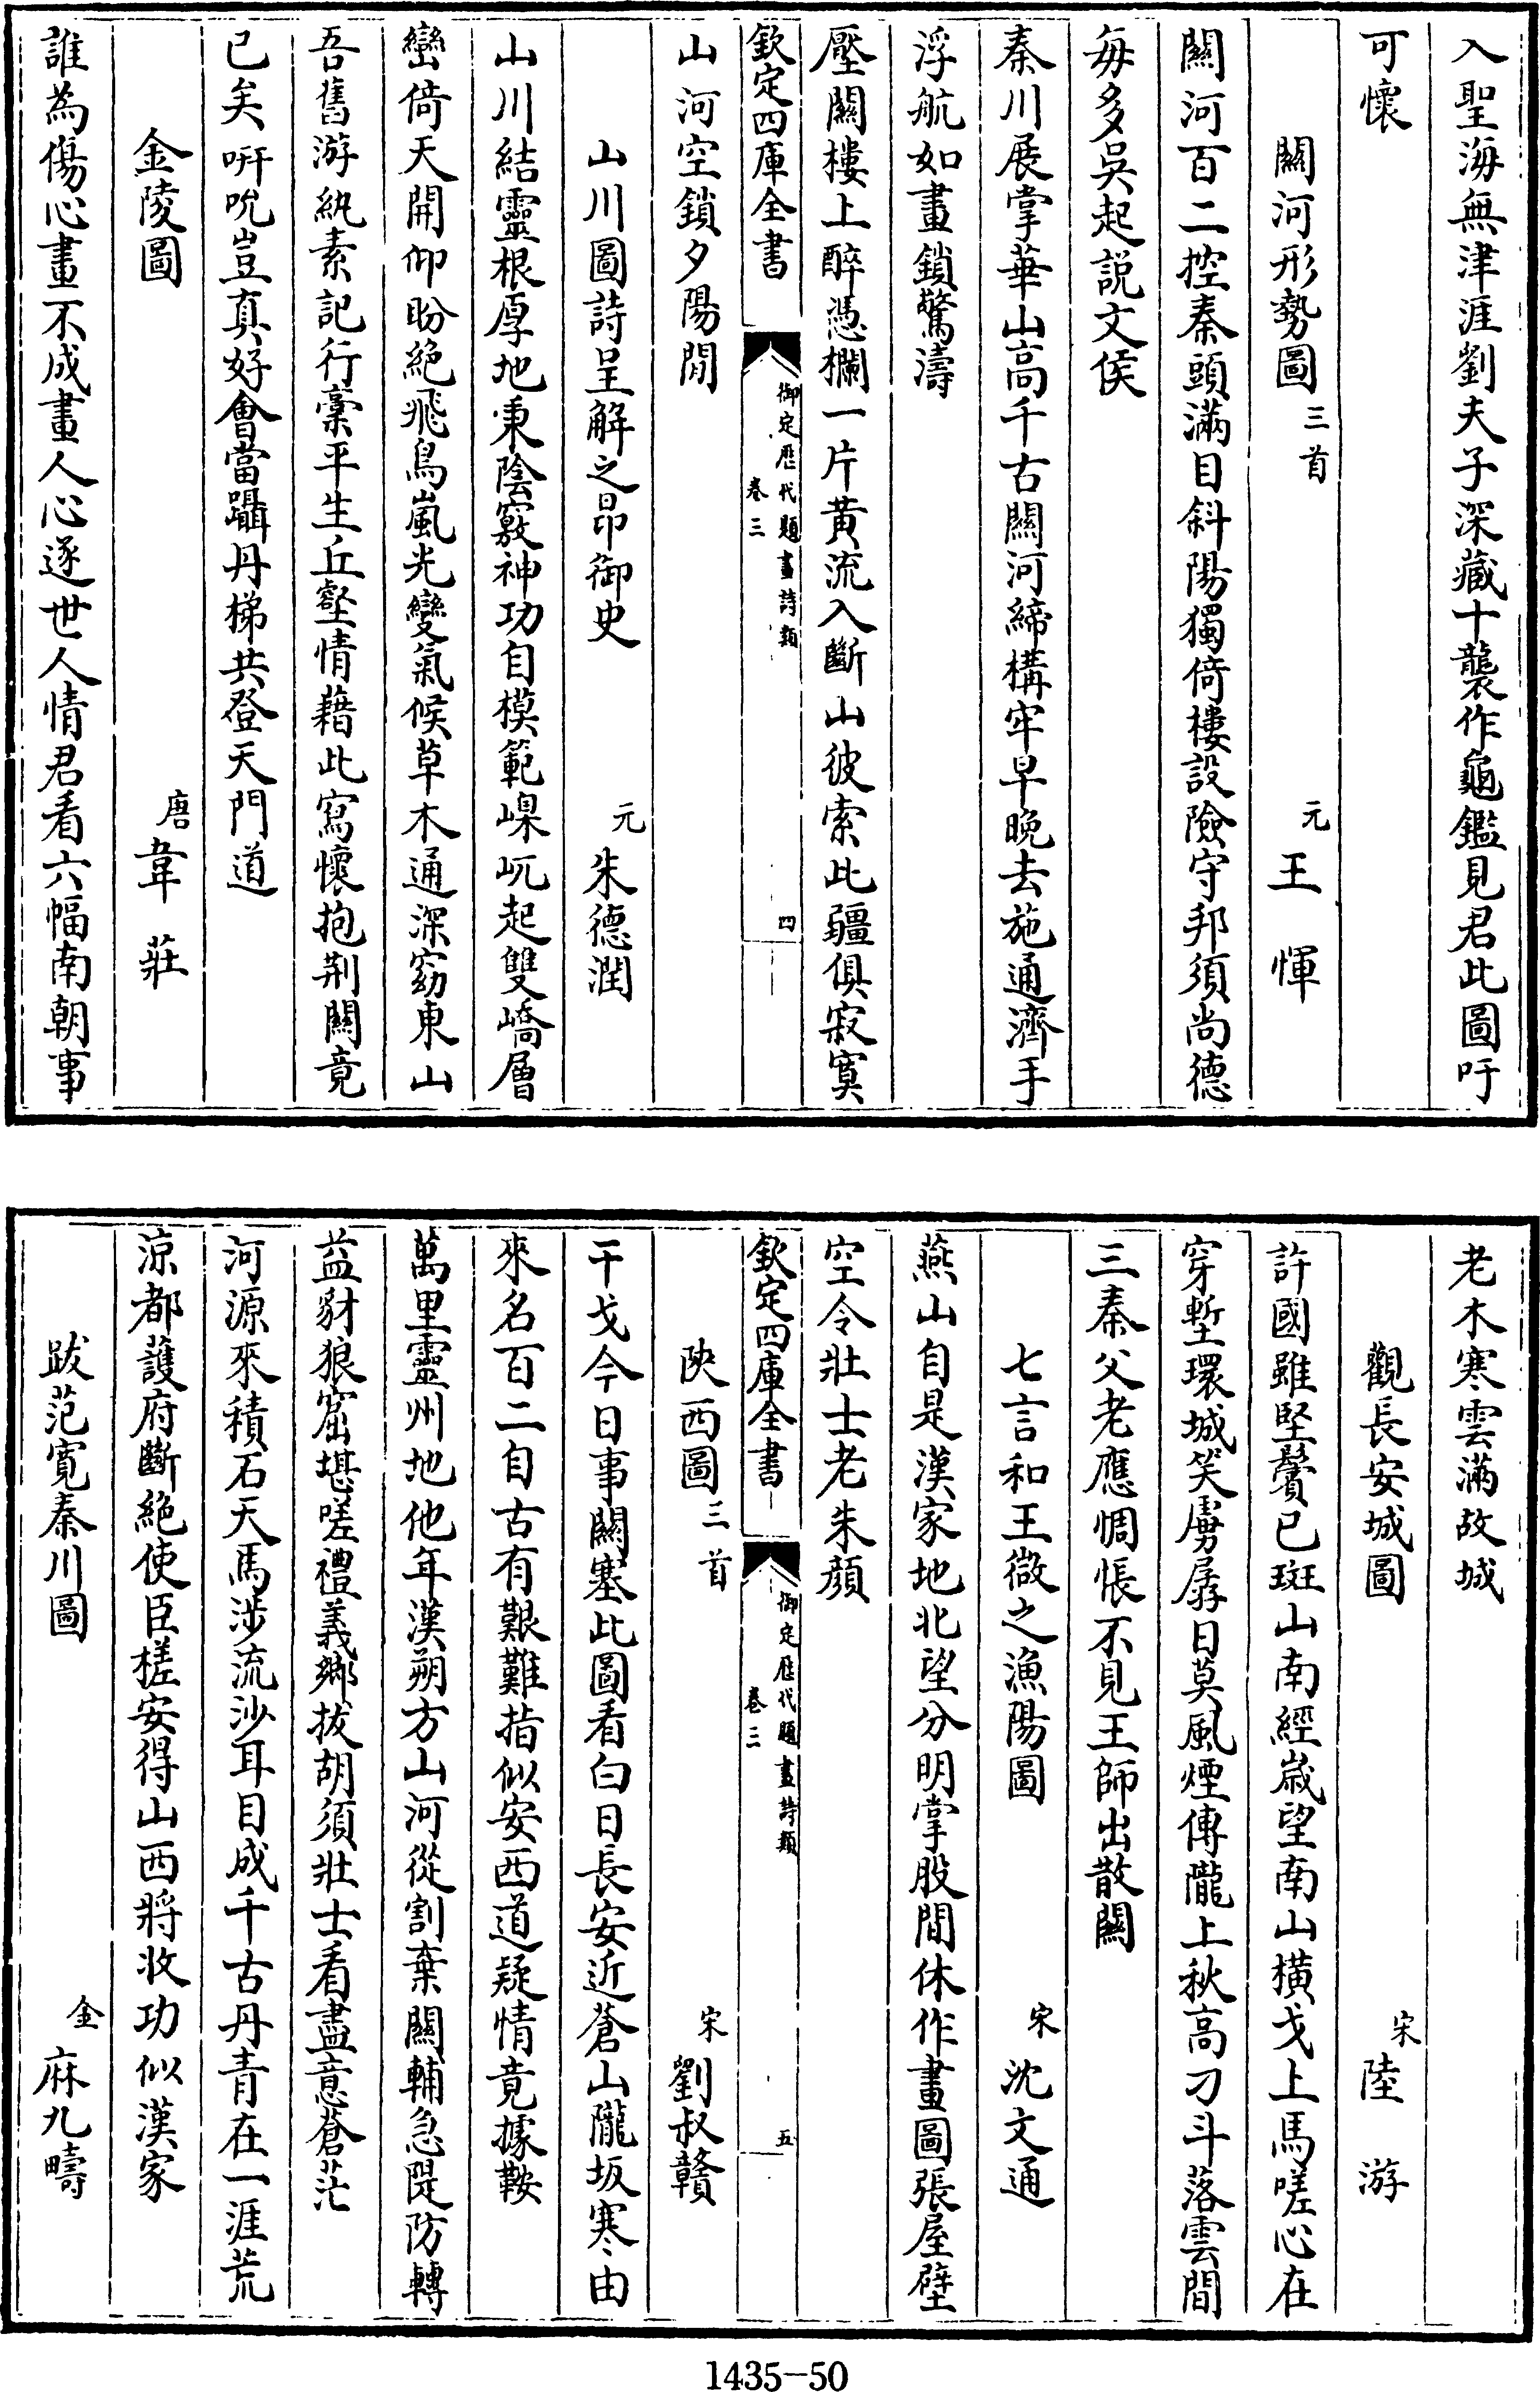 入聖海無津涯劉夫子深藏十襲作龜鑑見君此圖吁
可懷
關河形勢圖三首 元王惲
關河百二控秦頭滿目斜陽獨倚樓設險守邦須尚德
毎多吳起説文侯
秦川展掌華山高千古關河締構牢早晚去施通濟手
浮航如畫鎖驚濤
壓闗樓上醉憑欄一片黃流入斷山彼索此疆俱寂寞
欽定四庫全書 御定歴代題畫詩類 卷三 四
山河空鎖夕陽閒
山川圖詩呈解之昂御史 元朱德潤
山川結靈根厚地秉陰竅神功自模範嵲屼起雙嶠層
巒倚天開仰盼絶飛鳥嵐光變氣候草木通深窈東山
吾舊游紈素記行槖平生丘壑情藉此寫懷抱荆關竟
已矣咞吮豈真好會當躡丹梯共登天門道
金陵圖 唐韋莊
誰為傷心畫不成畫人心逐世人情君看六幅南朝事
老木寒雲滿故城
觀長安城圖 宋陸游
許國雖堅鬢已斑山南經嵗望南山横戈上馬嗟心在
穿塹環城笑虜孱日莫風煙傳隴上秋高刁斗落雲間
三秦父老應惆悵不見王師出散關
七言和王微之漁陽圖 宋沈文通
燕山自是漢家地北望分明掌股間休作畫圖張屋壁
空令壯士老朱顔
欽定四庫全書 御定歴代題畫詩類 卷三 五
陜西圖三首 宋劉叔贛
干戈今日事關塞此圖看白日長安近蒼山隴坂寒由
來名百二自古有艱難指似安西道疑情竟據鞍
萬里靈州地他年漢朔方山河從割棄關輔急隄防轉
益豺狼窟堪嗟禮義鄉拔胡須壯士看盡意蒼茫
河源來積石天馬涉流沙耳目成千古丹青在一涯荒
涼都護府斷絶使臣槎安得山西將收功似漢家
跋范寛秦川圖 金麻九疇
1435-50